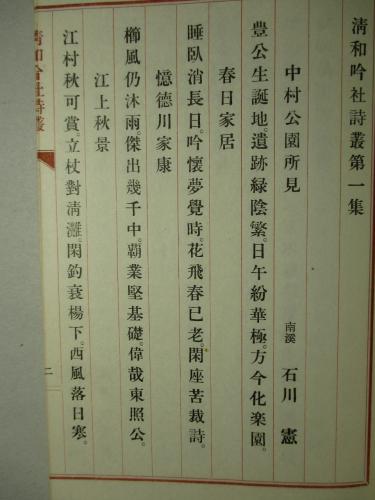 清和吟社詩叢第一集
中村公園所見
南溪 石川憲
豊公生誕地。遺跡緑陰繁。日午紛華極。方今化楽園。
春日家居
睡臥消長日。吟懷夢覺時。花飛春已老。閑座苦裁詩。
憶德川家康
櫛風仍沐雨。傑出幾千中。覇業堅基礎。偉哉東照公。
江上秋景
江村秋可賞。立杖對淸灘。閑釣衰楊下。西風落日寒。
淸和吟社詩叢
二